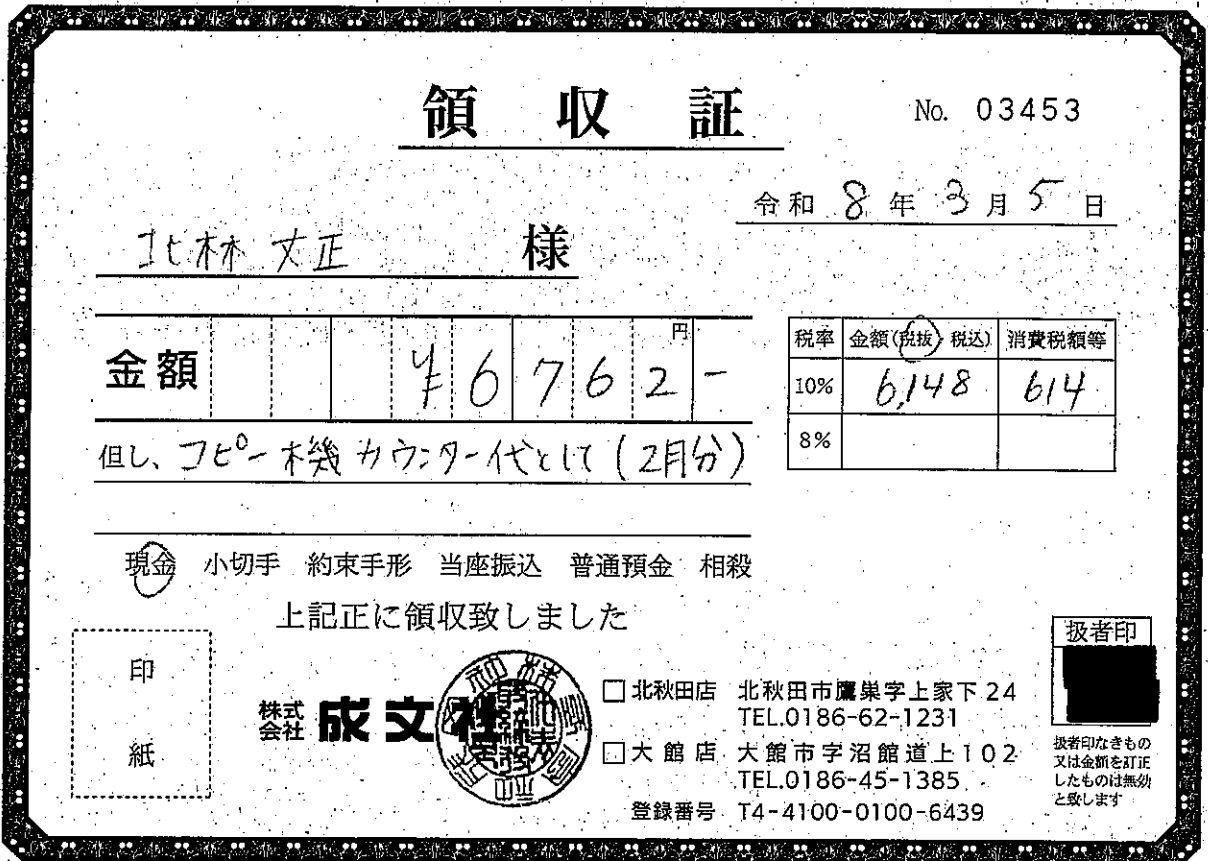 領収証
No. 03453
令和 8 年 3 月 5 日
北林 丈正 様
金額 ¥6762- 円
税率 金額(税抜・税込) 消費税額等
10% 6,148 614
8%
但し、コピー機カウンター代として(2月分)
現金 小切手 約束手形 当座振込 普通預金 相殺
上記正に領収致しました
印紙
株式会社 成文社
□北秋田店 北秋田市鷹巣字上家下24
TEL.0186-62-1231
□大館店 大館市字沼館道上102
TEL.0186-45-1385
登録番号 T4-4100-0100-6439
扱者印
扱者印なきもの
又は金額を訂正
したものは無効
と致します